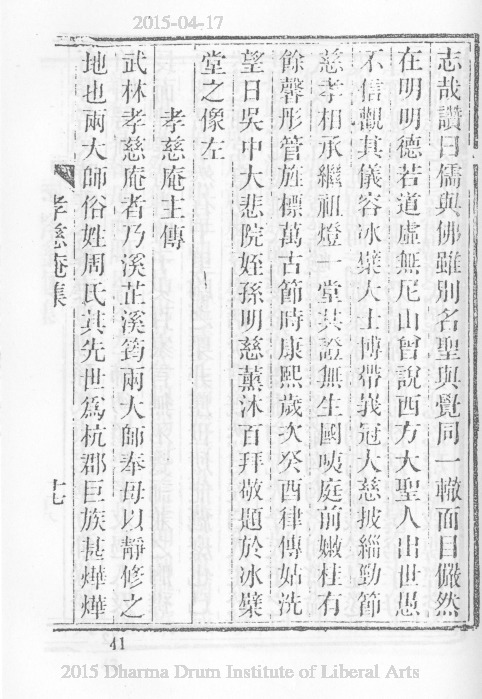 2015-04-17
志哉讚曰儒與佛雖別名聖與覺同一轍面目儼然
在明明德若道虛無尼山曾說西方大聖人出世愚
不信觀其儀容冰檗大士博帶峩冠大慈披緇勁節
慈孝相承繼祖燈一堂共證無生國㖟庭前嫩桂有
餘馨彤管旌標萬古節時康熙歲次癸酉律傳姑洗
望日吳中大悲院姪孫明慈薰沐百拜敬題於冰檗
堂之像左
孝慈庵主傳
武林孝慈庵者乃溪芷溪筠兩大師奉母以靜修之
地也兩大師俗姓周氏其先世爲杭郡巨族甚燁燁
孝慈庵集
十七
41
2015 Dharma Drum Institute of Liberal Arts